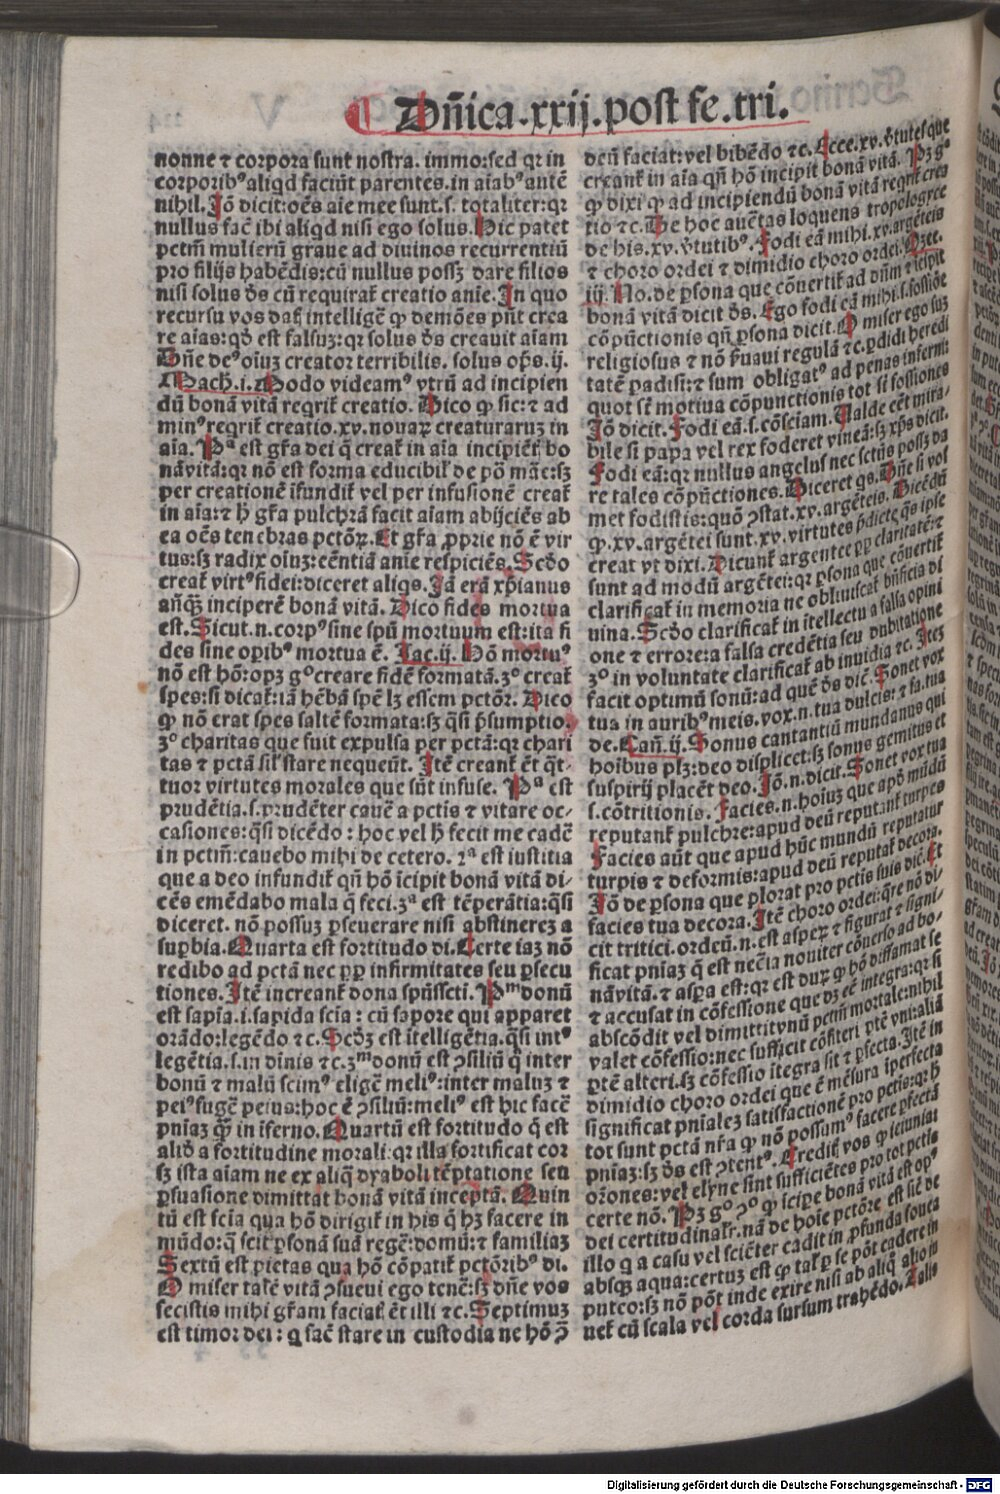 Dñica.xxij.post fe.tri.
nonne ⁊ corpora sunt nostra. immo:sed qꝛ in
corporibꝰ aliqd faciūt parentes.in aiabꝰ autē
nihil. Jō dicit:oēs aīe mee sunt.s. totaliter:qꝛ
nullus facͭ ibi aliqd nisi ego solus. Hic patet
pctm̄ mulierū graue ad diuinos recurrentiū
pro filijs habēdis:cū nullus possꝫ dare filios
nisi solus ds̄ cū requirat̄ creatio anīe. In quo
recursu vos datꝭ intelligē ꝙ demōes pn̄t crea
re aīas:qd̓ est falsuꝫ:qꝛ solus ds̄ creauit aīam
Dn̄e deꝰ oīuꝫ creator terribilis. solus op̄s. ij.
Mach.i. Modo videamꝰ vtrū ad incipien
dū bonā vitā reqrit̄ creatio. Dico ꝙ sic:⁊ ad
minꝰ reqrit̄ creatio.xv. nouaꝝ creaturaruꝫ in
aīa. Pᵃ est gr̄a dei q̄ creat̄ in aīa incipiētꝭ bo
nā vitā:qꝛ nō est forma educibil̓ de pō māe:sꝫ
per creationē īfundit̄ vel per infusionē creat̄
in aīa:⁊ h̓ gr̄a pulchrā facit aīam abijciēs ab
ea oēs tenebras pctōꝝ. Et gr̄a ꝓprie nō ē vir
tus:sꝫ radix oīuꝫ:eēntiā anīe respiciēs. Scd̓o
creat̄ virtꝰ fidei:diceret aliqs. Jā erā xp̄ianus
an̄qꝫ inciperē bonā vitā. Dico fides mortua
est. Sicut.n.corpꝰ sine spū mortuum est:ita fi
des sine opībꝰ mortua ē. Jac.ij. Hō mortuꝰ
nō est hō:opꝫ gͦ creare fidē formatā. 3ͦ creat̄
spes:si dicat̄:iā hēbā spē lꝫ essem pctōr. Dico
ꝙ nō erat spes saltē formata:sꝫ q̄si p̄sumptio.
3ͦ charitas que fuit expulsa per pctā:qꝛ chari
tas ⁊ pctā sil̓ stare nequeūt. Itē creant̄ ēt q̄t-
tuor virtutes morales que sūt infuse. Pᵃ est
prudētia.s.prudēter cauē a pctis ⁊ vitare oc-
casiones:q̄si dicēdo : hoc vel h̓ fecit me cadē
in pctm̄:cauebo mihi de cetero. 2ᵃ est iustitia
que a deo infundit̄ qn̄ hō īcipit bonā vitā di-
cēs emēdabo mala q̄ feci. 3ᵃ est tēperātia:q̄si
diceret. nō possuꝫ ꝑseuerare nisi abstinereꝫ a
suꝑbia. Quarta est fortitudo di. Certe iaꝫ nō
redibo ad pctā nec ꝓꝑ infirmitates seu ꝑsecu
tiones. Itē increant̄ dona spūsscti. Pᵐ donū
est sapīa.i.sapida scīa : cū sapore qui apparet
orādo:legēdo ⁊c. Scd̓ꝫ est ītelligētia.q̄si intꝰ
legētia.s.in dīnis ⁊c. 3ᵐ donū est ɔsiliū q̄ inter
bonū ⁊ malū scimꝰ eligē meliꝰ:inter maluꝫ ⁊
peiꝰ fugē peius:hoc ē ɔsiliū:meliꝰ est hic facē
pn̄iaꝫ q̄ꝫ in īferno. Quartū est fortitudo q̄ est
alid̓ a fortitudine morali:qꝛ illa fortificat cor
sꝫ ista aīam ne ex aliq̄ dyaboli tēptatione seu
ꝑsuasione dimittat bonā vitā inceptā. Quin
tū est scīa qua hō dirigit̄ in his q̄ hꝫ facere in
mūdo:q̄ scit ꝑsonā suā regē:domū:⁊ familiaꝫ
Sextū est pietas qua hō cōpatit̄ pctōribꝰ di.
O miser talē vitā ɔsueui ego tenē:sꝫ dn̄e vos
fecistis mihi gr̄am faciatꝭ ēt illi ⁊c. Septimuꝫ
est timor dei : q facͭ stare in custodia ne hō ɔ̄
deū faciat:vel bibēdo ⁊c. Ecce.xv.v̓tutes que
creant̄ in aīa qn̄ hō incipit bonā vitā. Pꝫ gͦ
ꝙ dixi ꝙ ad incipiendū bonā vitā reqrit̄ crea
tio ⁊c. De hoc auētas loquens tropologyce
de his.xv.v̓tutibꝰ. Fodi eā mihi.xv.argēteis
⁊ choro ordei ⁊ dimidio choro ordei. Ozee.
iij. No.de ꝑsona que cōuertit̄ ad dn̄m ⁊ īcipit
bonā vitā dicit ds̄. Ego fodi eā mihi.s.fossiōe
cōpūctionis qn̄ ꝑsona dicit. O miser ego suꝫ
religiosus ⁊ nō ẜuaui regulā ⁊c.pdidi heredi
tatē padisi:⁊ sum obligatꝰ ad penas inferni:
quot sūt motiua cōpunctionis tot sī fossiones
Jō dicit. Fodi eā.s.cōsciam. Valde eēt mira-
bile si papa vel rex foderet vineā:sꝫ xp̄s dicit.
Fodi eā:qꝛ nullus angelus nec sctūs possꝫ da
re tales cōpūctiones. Diceret qs. Dn̄e si vos
met fodistis:quō ɔstat.xv.argēteis. Dicēdū
ꝙ.xv.argētei sunt.xv.virtutes p̄dicte q̄s ipse
creat vt dixi. Dicunt̄ argentee ꝓꝑ claritatē:⁊
sunt ad modū argētei:qꝛ ꝑsona que cōuertit̄
clarificat̄ in memoria ne obliuiscat̄ bn̄ficia di
uina. Scd̓o clarificat̄ in ītellectu a falsa opini
one ⁊ errore:a falsa credētia seu dubitatione
3ͦ in voluntate clarificat̄ ab inuidia ⁊c. Iteꝫ
facit optimū sonū:ad quē ds̄ dic̄. Sonet vox
tua in auribꝰ meis.vox.n.tua dulcis:⁊ fa.tua
de. Cañ.ij. Sonus cantantiū mundanus qui
hoībus plꝫ:deo displicet:sꝫ sonus gemitus et
suspirij placēt deo. Jō.n.dicit. Sonet vox tua
s.cōtritionis. Facies.n.hoīuꝫ que apd̓ mūdū
reputant̄ pulchre:apud deū reputant̄ turpes
Facies aūt que apud hūc mundū reputatur
turpis ⁊ deformis:apud deū reputat̄ decora.
Jō de ꝑsona que plorat pro pctis suis dic̄. Et
facies tua decora. Itē choro ordei:q̄re nō di
cit tritici.ordeū.n.est aspeꝝ ⁊ figurat ⁊ signi-
ficat pn̄iaꝫ q̄ est neccīa nouiter cōuerso ad bo-
nā vitā.⁊ aspa est:qꝛ est duꝝ ꝙ hō diffamat se
⁊ accusat in cōfessione que dꝫ eē integra:qꝛ si
abscōdit vel dimittit vnū pctm̄ mortale:nihil
valet cōfessio:nec sufficit cōfiteri ꝑtē vni:aliā
ꝑtē alteri.sꝫ cōfessio ītegra sit ⁊ ꝑfecta. Itē in
dimidio choro ordei que ē mēsura īperfecta
significat pn̄ialeꝫ satisfactionē pro pctis:qꝛ h̓
tot sunt pctā nr̄a ꝙ nō possumꝰ facere ꝑfectā
pn̄iaꝫ:sꝫ ds̄ est ɔtentꝰ. Creditꝭ vos ꝙ ieiuniaz
or̄ones:vel elyn̄e sint sufficiētes pro tot pctis
certe nō. Pꝫ gͦ ɔͦ ꝙ īcipe bonā vitā est opꝰ
dei certitudinalr̄.nā de hoīe pctōre est sic̄ de
illo q a casu vel sciēter cadit in ꝓfunda fouea
absqꝫ aqua:certuꝫ est ꝙ tal̓ ꝑ se pōt cadere in
puteo:sꝫ nō pōt inde exire nisi ab aliq̄ alio iu
uet̄ cū scala vel corda sursum trahēdo. Talis
Digitalisierung gefördert durch die Deutsche Forschungsgemeinschaft - DFG